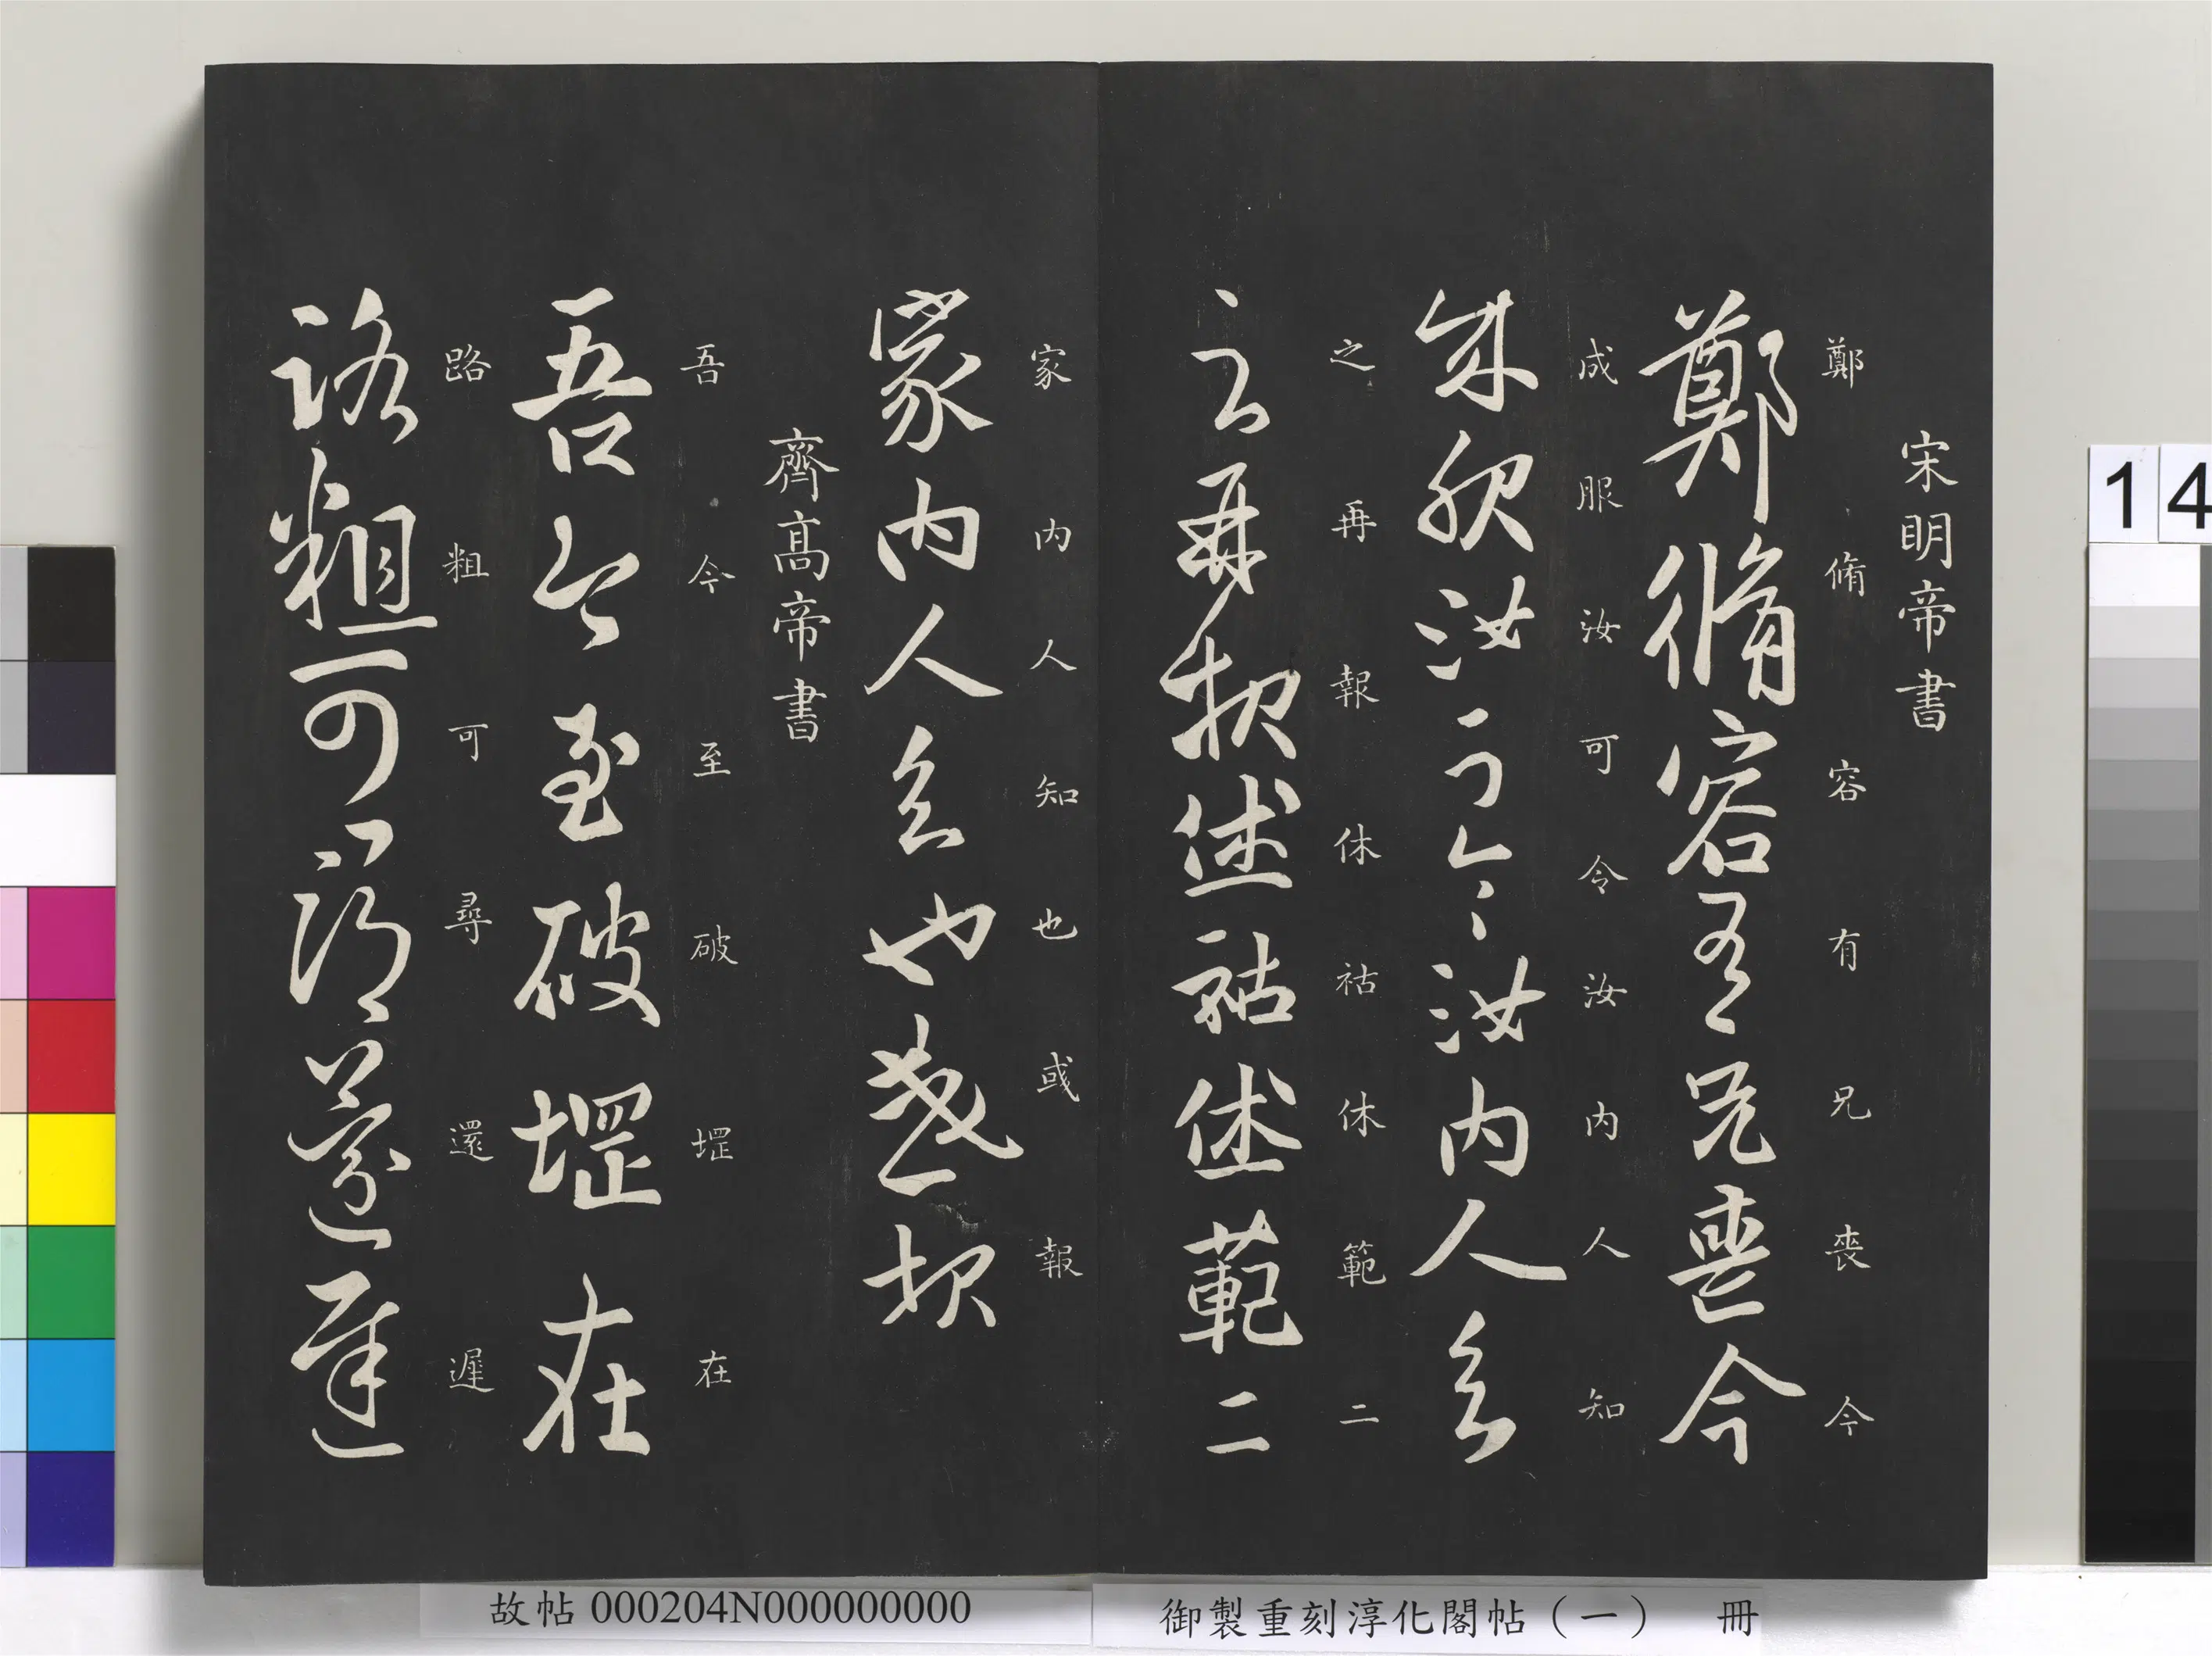 宋明帝書
鄭脩容有兄喪今
鄭脩容有兄喪今
成服汝可令汝內人知
成服汝可令汝內人知
之再報休祜休範二
之再報休祜休範二
家內人知也或報
家內人知也或報
齊高帝書
吾今至破堽在
吾今至破堽在
路粗可尋還遲
路粗可尋還遲
14
故帖 000204N000000000
御製重刻淳化閣帖（一） 冊